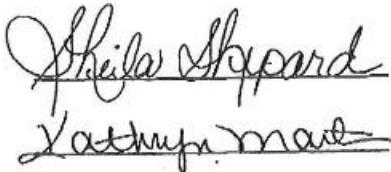 Sheila Shepard
Kathryn Mart